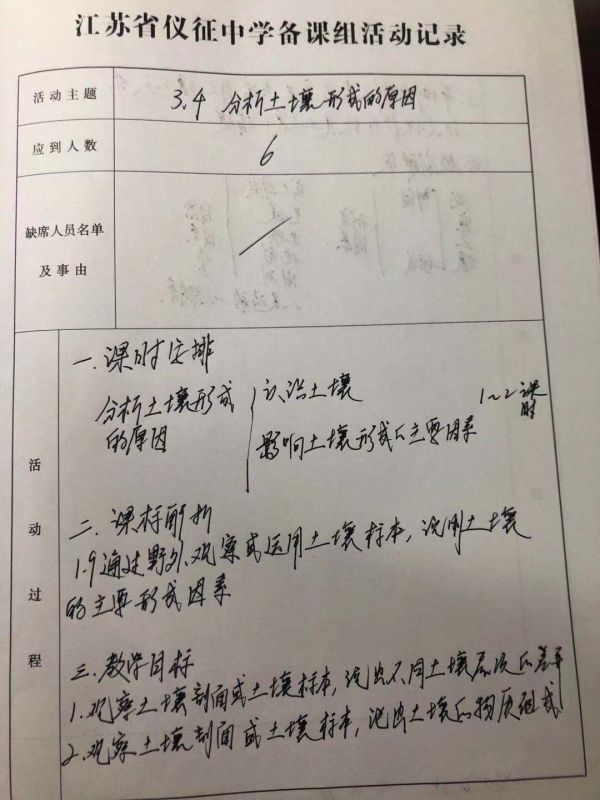 江苏省仪征中学备课组活动记录
活动主题
3.4 分析土壤形成的原因
应到人数
6
缺席人员名单
及事由
活动过程
一.课时安排
分析土壤形成
的原因
认识土壤
影响土壤形成的主要因素
1~2课
时
二.课标解析
1.9通过野外观察或运用土壤标本,说明土壤
的主要形成因素
三.教学目标
1.观察土壤剖面或土壤标本,说出不同土壤层次的差异
2.观察土壤剖面或土壤标本,说出土壤的物质组成